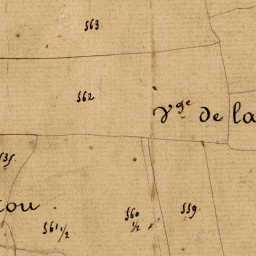 563
562
Vge de la
535
ou.
561 1/2
560 1/2
559